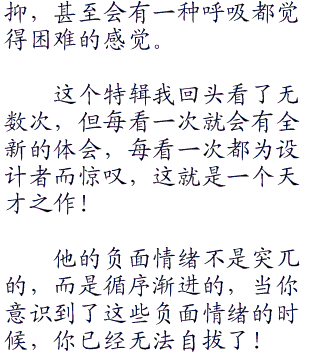 抑，甚至会有一种呼吸都觉
得困难的感觉。
这个特辑我回头看了无
数次，但每看一次就会有全
新的体会，每看一次都为设
计者而惊叹，这就是一个天
才之作！
他的负面情绪不是突兀
的，而是循序渐进的，当你
意识到了这些负面情绪的时
候，你已经无法自拔了！